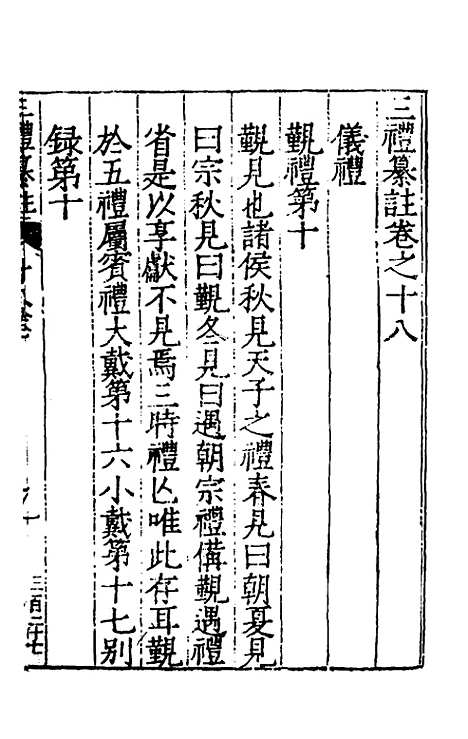 三禮纂註卷之十八
儀禮
覲禮第十
覲見也諸侯秋見天子之禮春見曰朝夏見
曰宗秋見曰覲冬見曰遇朝宗禮備覲遇禮
省是以享獻不見焉三時禮亾唯此存耳覲
於五禮屬賓禮大戴第十六小戴第十七別
録第十
三禮纂註